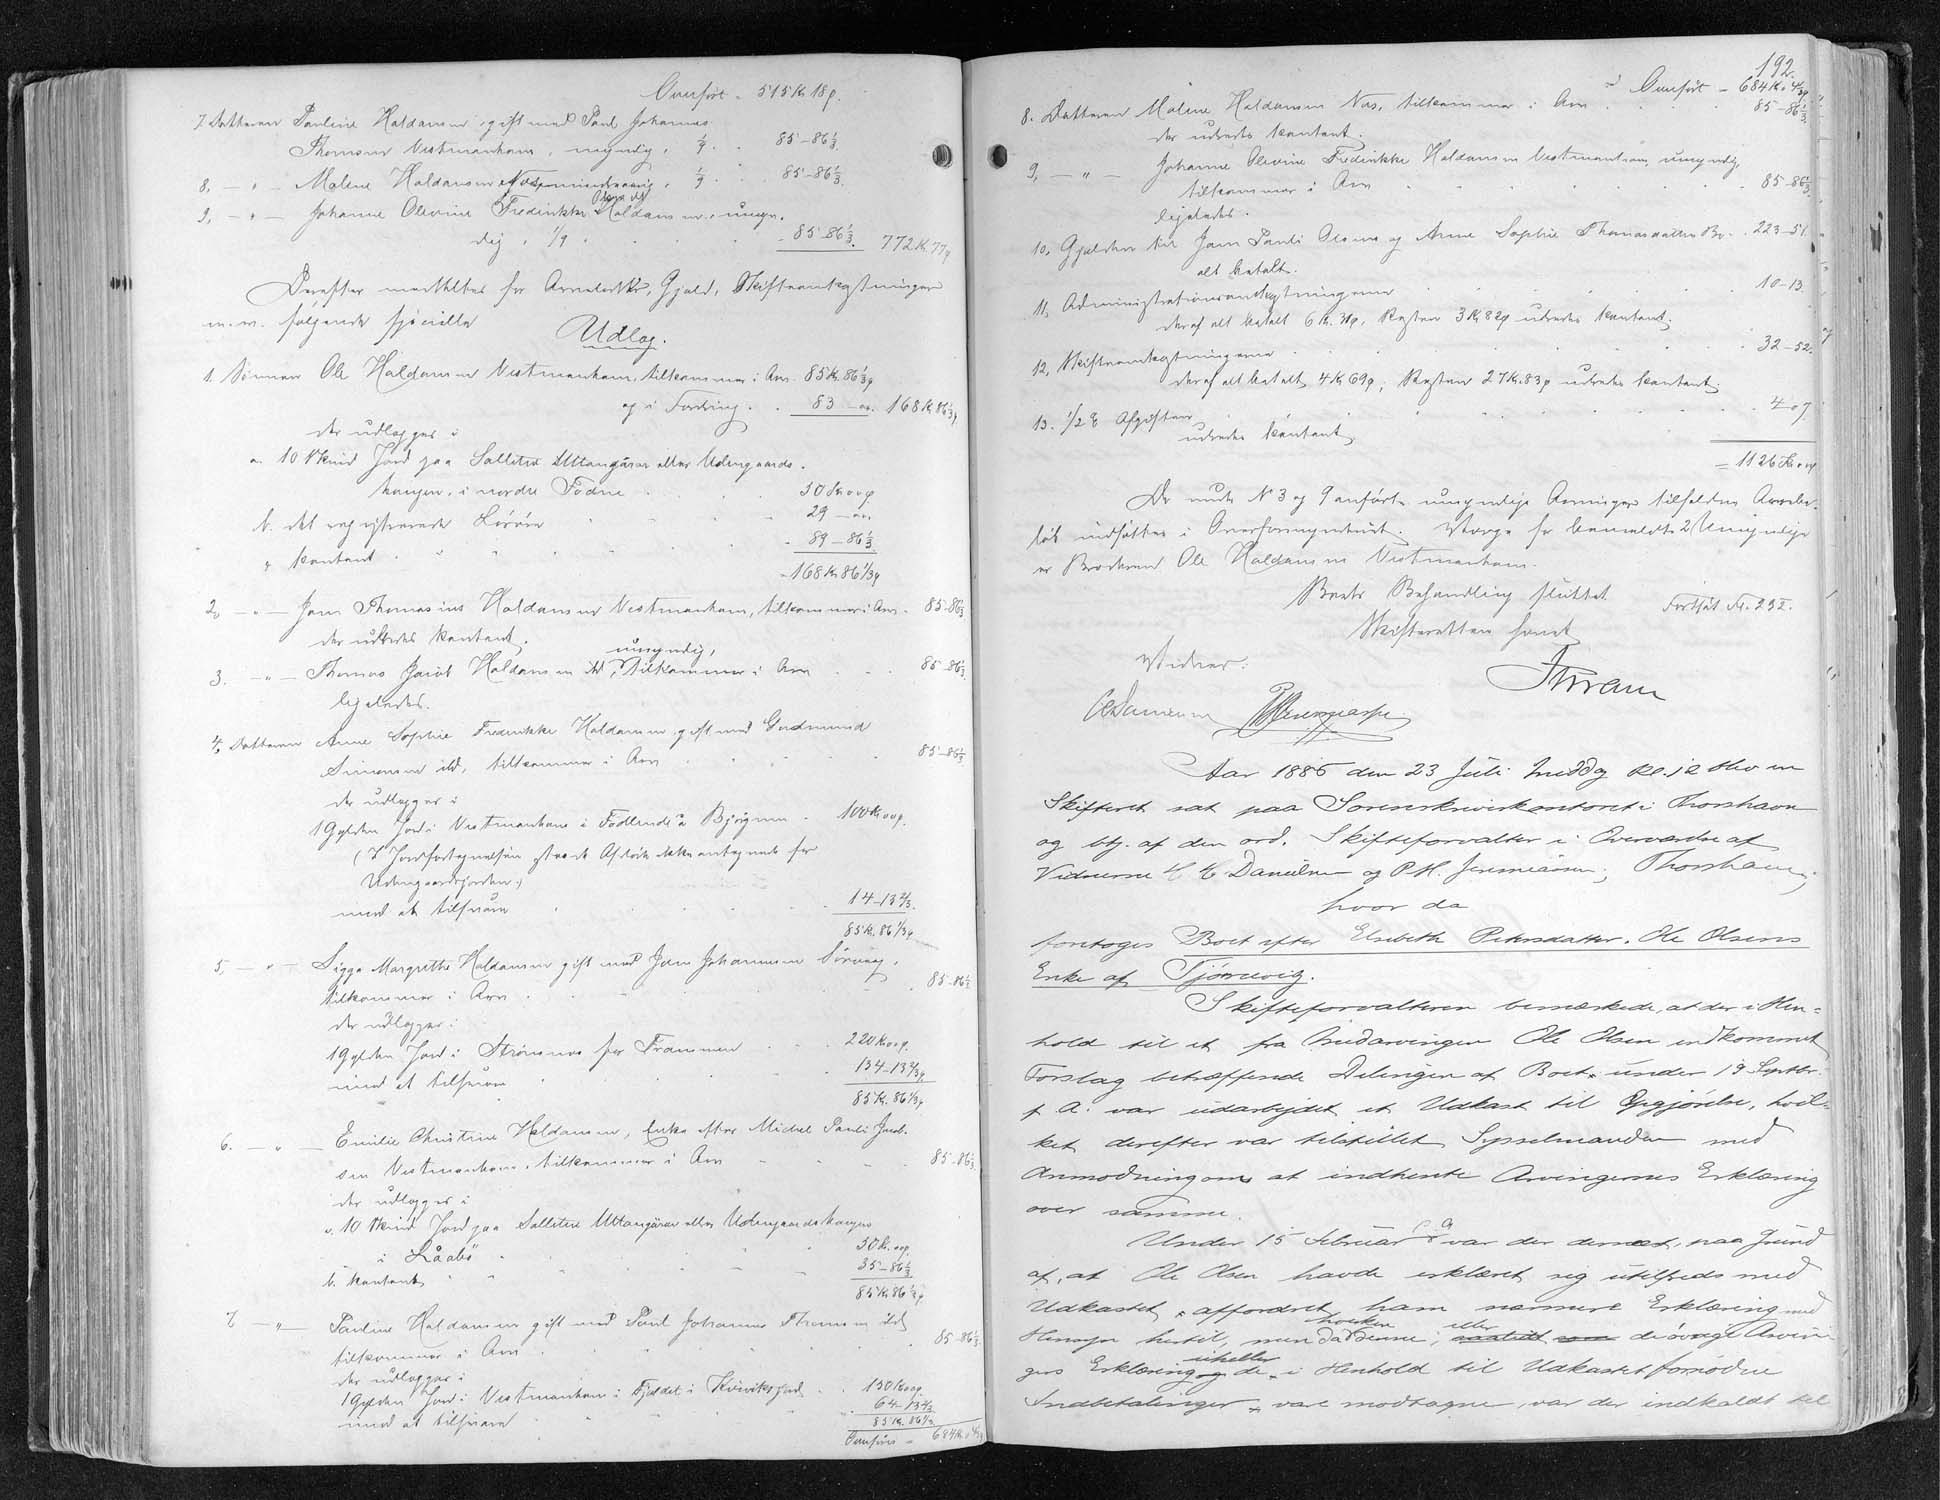 Overført - 515 Kr 18 ø.
7. Datteren Pauline Haldansen, gift med Poul Johannes
Thomsen Vestmanhavn, myndig, 1/9 . . 85-86 1/3.
8, - " - Malene Haldansen Næs, 1/9 . . 85-86 1/3.
9, - " - Johanne Olevine Fredrikke Haldansen, umyn-
dig, 1/9 . . . . - 85-86 1/3. 772 Kr. 77 ø
Derefter meddeltes for Arvelodder, Gjæld, Skifteomkostninger
m.v. følgende specielle
Udlæg.
1. Sønnen Ole Haldansen Vestmanhavn, tilkommer i Arv. 85 Kr. 86 1/3 ø
og i Fordring . . 83 - "". 168 Kr 86 1/3 ø.
der udlægges i
a. 10 Skind Jord paa Sælletræ Uttangårar eller Udengaards-
haugen, i nordre Fodne . . . 50 Kr. 00 ø
b. det registrerede Løsøre . . . 29 - "".
c. kontant . . . - 89-86 1/3.
- 168 Kr 86 1/3 ø
2, - " - Jens Thomasius Haldansen Vestmanhavn, tilkommer i Arv. 85-86 1/3.
der udredes kontant.
3. - " - Thomas Jacob Haldansen ibd, umyndig, tilkommer i Arv . . . 85-86 1/3.
ligeledes.
4, Datteren Anne Sophie Fredrikke Haldansen, gift med Gudmund
Simonsen ibd, tilkommer i Arv . . . . 85-86 1/3.
der udlægges i
1 Gylden Jord i Vestmanhavn i Fodlende a Bjørgum - 100 Kr. 00 ø.
(I Jordfortegnelsen
Udengaardsjorden.)
mod at tilsvare . . . . 14-13 2/3.
85 Kr. 86 1/3 ø
5, - " - Sigga Margrethe Haldansen gift med Jens Johannesen Sørvaag,
tilkommer i Arv . . . . 85-86 1/3
der udlægges i
1 Gylden Jord i Strømnæs for Fransmen . . . 220 Kr. 00 ø.
mod at tilsvare . . . 134-13 2/3 ø
85 Kr. 86 1/3 ø
6. - " - Emilie Christine Haldansen, Enke efter Michel Pauli Jacob-
sen Vestmanhavn, tilkommer i Arv - - - 85-86 1/3.
der udlægges i
a, 10 Skind Jord paa Sælletræ Uttangårar eller Udengaardshaugen
i Låabö . . . 50 Kr. 00 ø.
b. kontant . . . 35-86 1/3
85 Kr 86 1/3 ø
7, - " - Pauline Haldansen gift med Poul Johannes Thomsen ibd
tilkommer i Arv . . . . 85-86 1/3.
der udlægges i
1 Gylden Jord i Vestmanhavn i Fjeldet i Kviviksjord . . 150 Kr. 00 ø.
mod at tilsvare . . 64-13 2/3
85 Kr. 86 1/3
Overføres - 684 Kr.
192.
Overført - 684 Kr.
8. Datteren Malene Haldansen Næs, tilkommer i Arv . . . 85-86 1/3.
der udredes kontant.
9, - " - Johanne Olevine Fredrikke Haldansen Vestmanhavn, umyndig,
tilkommer i Arv . . . . 85-86 1/3.
ligeledes.
10, Gjælden til Jens Pauli Olsens og Anne Sophie Thomasdatters Bo . . 223-51.
alt betalt.
11, Administrationsomkostningerne . . . . 10-13.
deraf alt betalt 6 Kr. 31 ø, Resten 3 Kr 82 ø udredes kontant.
12, Skifteomkostningerne . . . . 32-52.
deraf alt betalt 4 Kr 69 ø, Resten 27 Kr. 83 ø udredes kontant.
13. 1/2 % Afgiften . . . . 4-07.
udredes kontant.
= 1126 Kr. 00 ø
De under No 3 og 9 anførte umyndige Arvinger tilfaldne Arvebe-
løb indsættes i Overformynderiet. Værge for bemeldte 2 Umyndige
er Broderen Ole Haldansen Vestmanhavn.
Boets Behandling sluttet Fortsat S. 232.
Skifteretten hævet
Vidner:
Aar 1886 den 23 Juli Middag Kl. 12 blev en
Skifteret sat paa Sorenskriverkontoret i Thorshavn
og btj. af den ord. Skifteforvalter i Overværelse af
Vidnerne Danielsen og P.M. Jeremiasen, Thorshavn,
hvor da
foretoges Boet efter Elsebeth Petersdatter, Ole Olsens
Enke af Tjørnevig.
Skifteforvalteren bemærkede, at der i Hen-
hold til et fra Medarvingen Ole Olsen indkommet
Forslag betræffende Delingen af Boet, under 19 Septbr.
f. A. var udarbejdet et Udkast til Opgjørelse, hvil-
ket derefter var tilstillet Sysselmanden med
Anmodning om at indhente Arvingernes Erklæring
over samme.
Under 15 Februar d. A. var der dernæst, paa Grund
af, at Ole Olsen havde erklæret sig utilfreds med
Udkastet, affordret ham nærmere Erklæring med
Hensyn hertil, men da hverken denne, eller de øvrige Arvin-
gers Erklæring og de i Henhold til Udkastet fornødne
Indbetalinger vare modtagne, var der indkaldt til